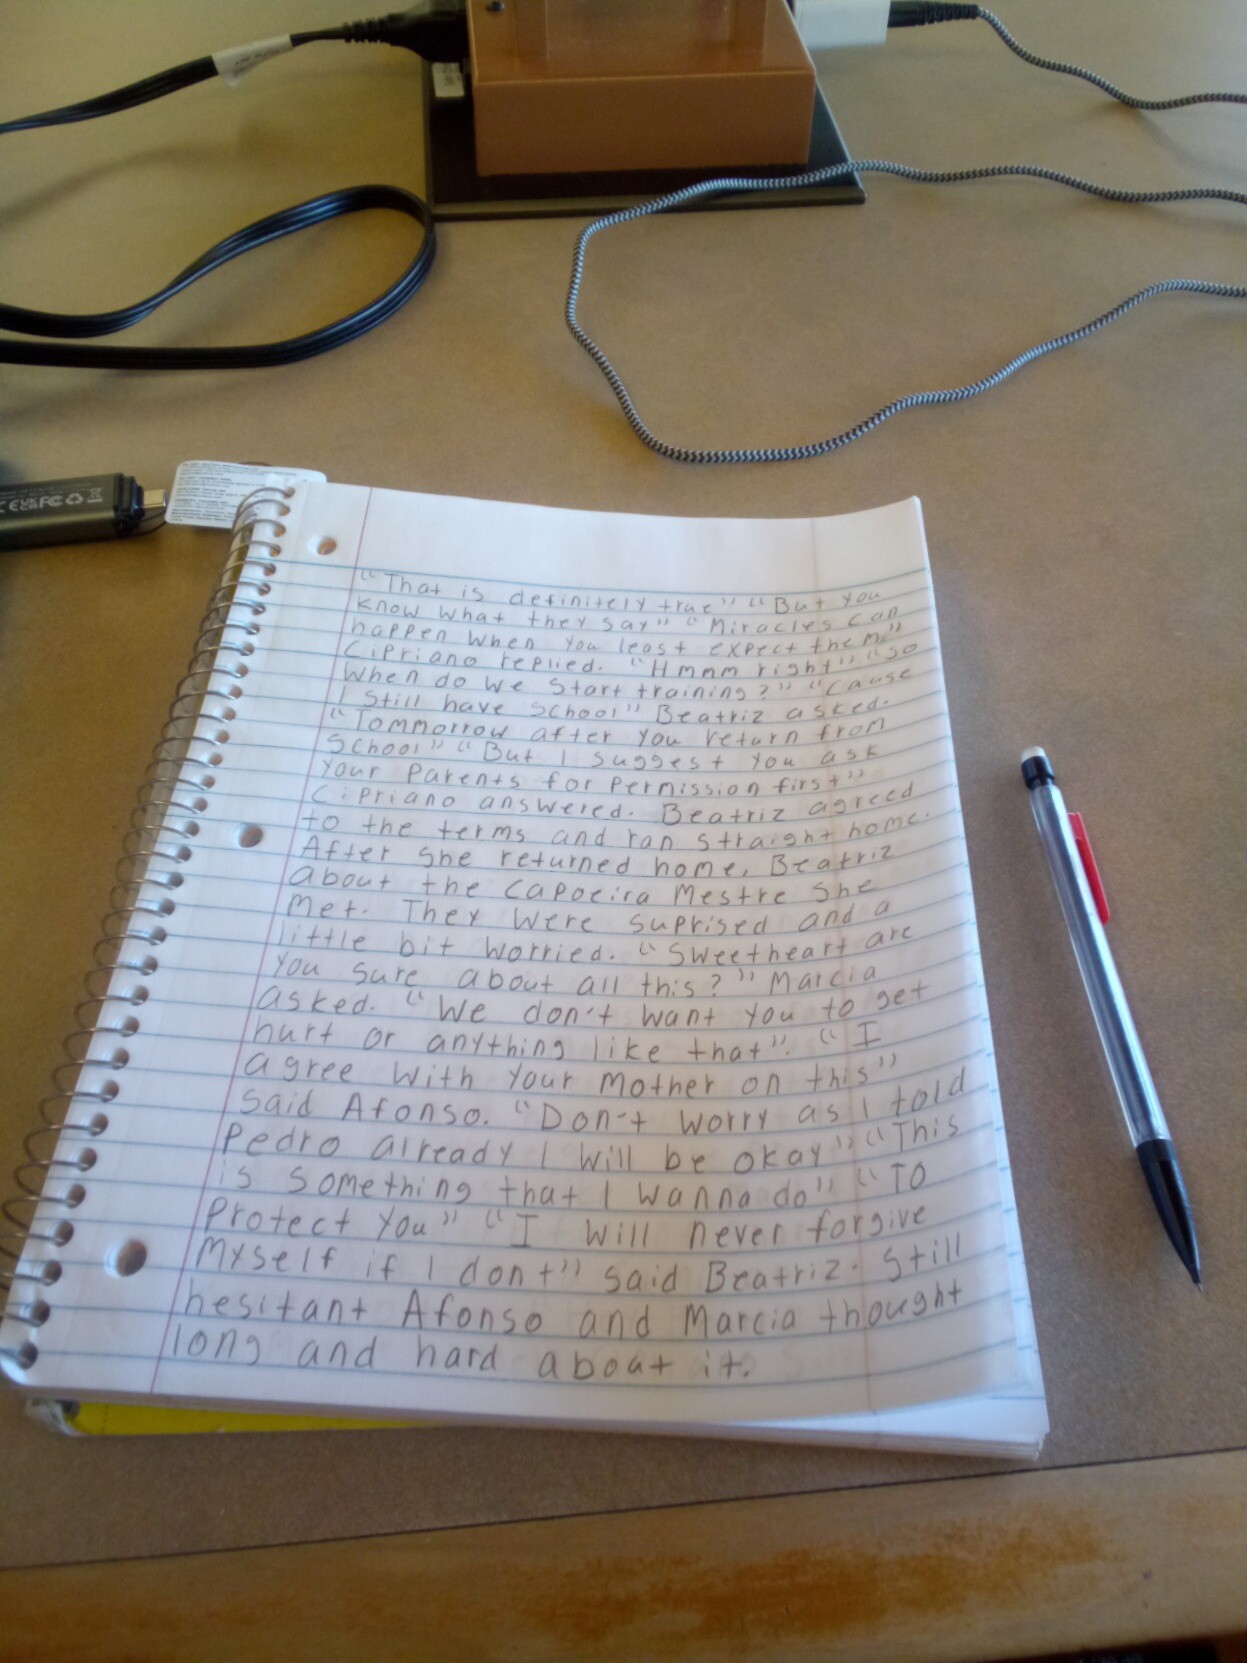 "That is definitely true" "But you
know what they say" "Miracles can
happen when you least expect them"
Cipriano replied. "Hmmm right" "So
when do we start training?" "Cause
I still have school" Beatriz asked.
"Tommorrow after you return from
school" "But I suggest you ask
your parents for permission first"
Cipriano answered. Beatriz agreed
to the terms and ran straight home.
After she returned home, Beatriz
about the capoeira Mestre she
met. They were suprised and a
little bit worried. "Sweetheart are
you sure about all this?" Marcia
asked. "We don't want you to get
hurt or anything like that". "I
agree with your mother on this"
said Afonso. "Don't worry as I told
Pedro already I will be okay" "This
is something that I wanna do" "To
protect you" "I will never forgive
myself if I don't" said Beatriz. Still
hesitant Afonso and Marcia thought
long and hard about it.